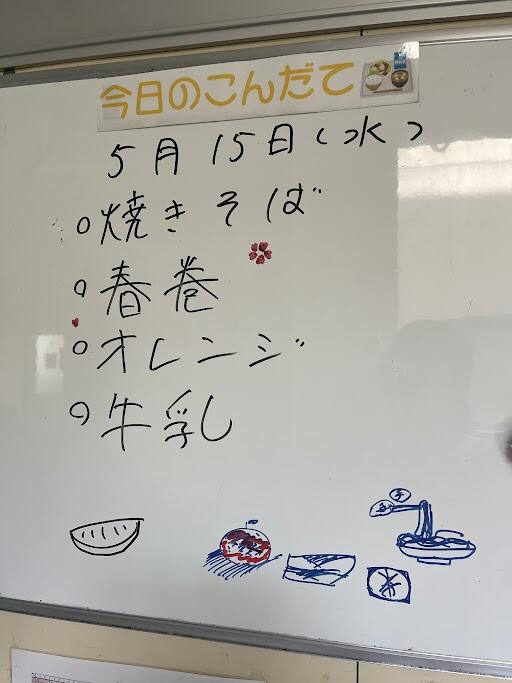 今日のこんだて
5月15日(水)
○焼きそば
○春巻
○オレンジ
○牛乳